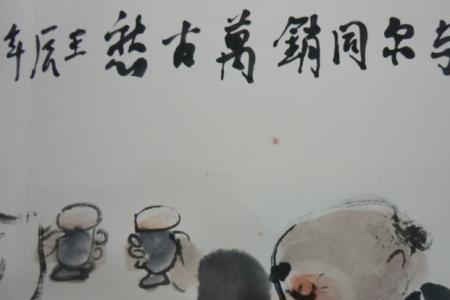 与尔同銷萬古愁壬辰年